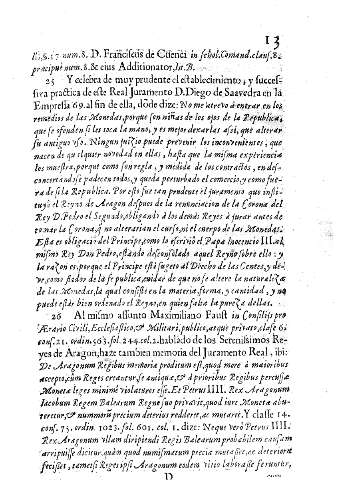 13
lib. 5. 17 num. 8. D. Franciscus de Cuenca in schol. Comand. claus. 8.
principue num. 8. & eius Additionator, lit. B.
25 Y celebra de muy prudente el establecimiento, y succes-
siva practica de este Real Juramento D. Diego de Saavedra en la
Empresia 69. al fin de ella, dōde dize: No me atrevo à entrar en los
remedios de las Monedas, porque son niñas de los ojos de la Republica,
que se ofenden si les toca la mano, y es mejor dexarlas assi, que alterar
su antiguo uso. Ningun juizio puede prevenir los inconvenientes, que
nacen de qualquier novedad en ellas, hasta que la misma experiencia
los muestra, porque como son regla, y medida de los contractos, en des-
concertandose padecen todos, y queda perturbado el comercio, y como fue-
ra de sì la Republica. Por esto fue tan prudente el juramento que insti-
tuyò el Reyno de Aragon despues de la renunciacion de la Corona del
Rey D. Pedro el Segundo, obligando à los demás Reyes à jurar antes de
tomar la Corona, q̄ no alterarian el curso, ni el cuerpo de las Monedas.
Esta es obligaciō del Principe, como lo escriviò el Papa Inocencio III. al
mismo Rey Don Pedro, estando desconsolado aquel Reyno sobre ello: y
la razon es, porque el Principe està sugeto al Drecho de las Gentes, y de-
ve, como fiador de la fe publica, cuidar de que no se altere la naturaleza
de las Monedas, la qual consiste en la materia, forma, y cantidad, y no
puede està bien ordenado el Reyno, en quien falta la pureza dellas.
26 Al mismo assunto Maximiliano Faust in Consiliis pro
Ærario Civili, Ecclesiastico, & Militari, publico, atque privato, clase 6.
cons. 21. ordin. 563. fol. 244. col. 2. hablado de los Serenissimos Re-
yes de Aragon, haze tambien memoria del Juramento Real, ibi:
De Aragonum Regibus memoria proditum est, quod more à maioribus
accepto, cum Reges creantur, se antiquas, & à prioribus Regibus percussas
Monetæ leges minimè violaturos esse. Et Petrus IIII. Rex Aragonum
Iacobum Regem Balearum Regno suo privavit, quod iure Moneta abu-
teretur, & nummorū precium deterius redderet, ac mutaret. Y classe 14.
cons. 75. ordin. 1023. fol. 601. col. 1. dize: Neque verò Petrus IIII.
Rex Aragonum ullam diripiendi Regis Balearum probabilem causam
arripuisse dicitur, quàm quod numismatum precia mutasset, ac deteriora
fecisset, tametsi Reges ipsi Aragonum eodem vitio laborasse feruntur,
D